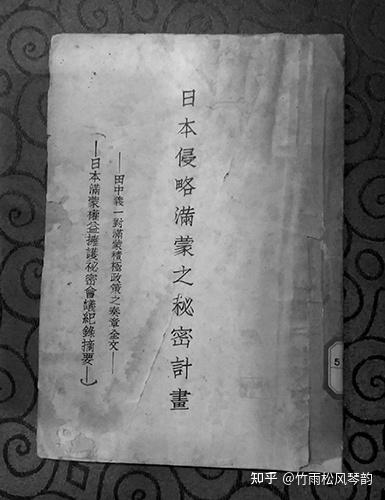 日本侵略滿蒙之秘密計畫
——田中義一對滿蒙積極政策之奏章全文——
（—日本滿蒙權益擁護秘密會議紀錄摘要—）
5
知乎 @竹雨松风琴韵